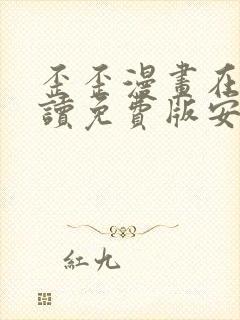 歪歪漫畫在
讀免費版安
紅九